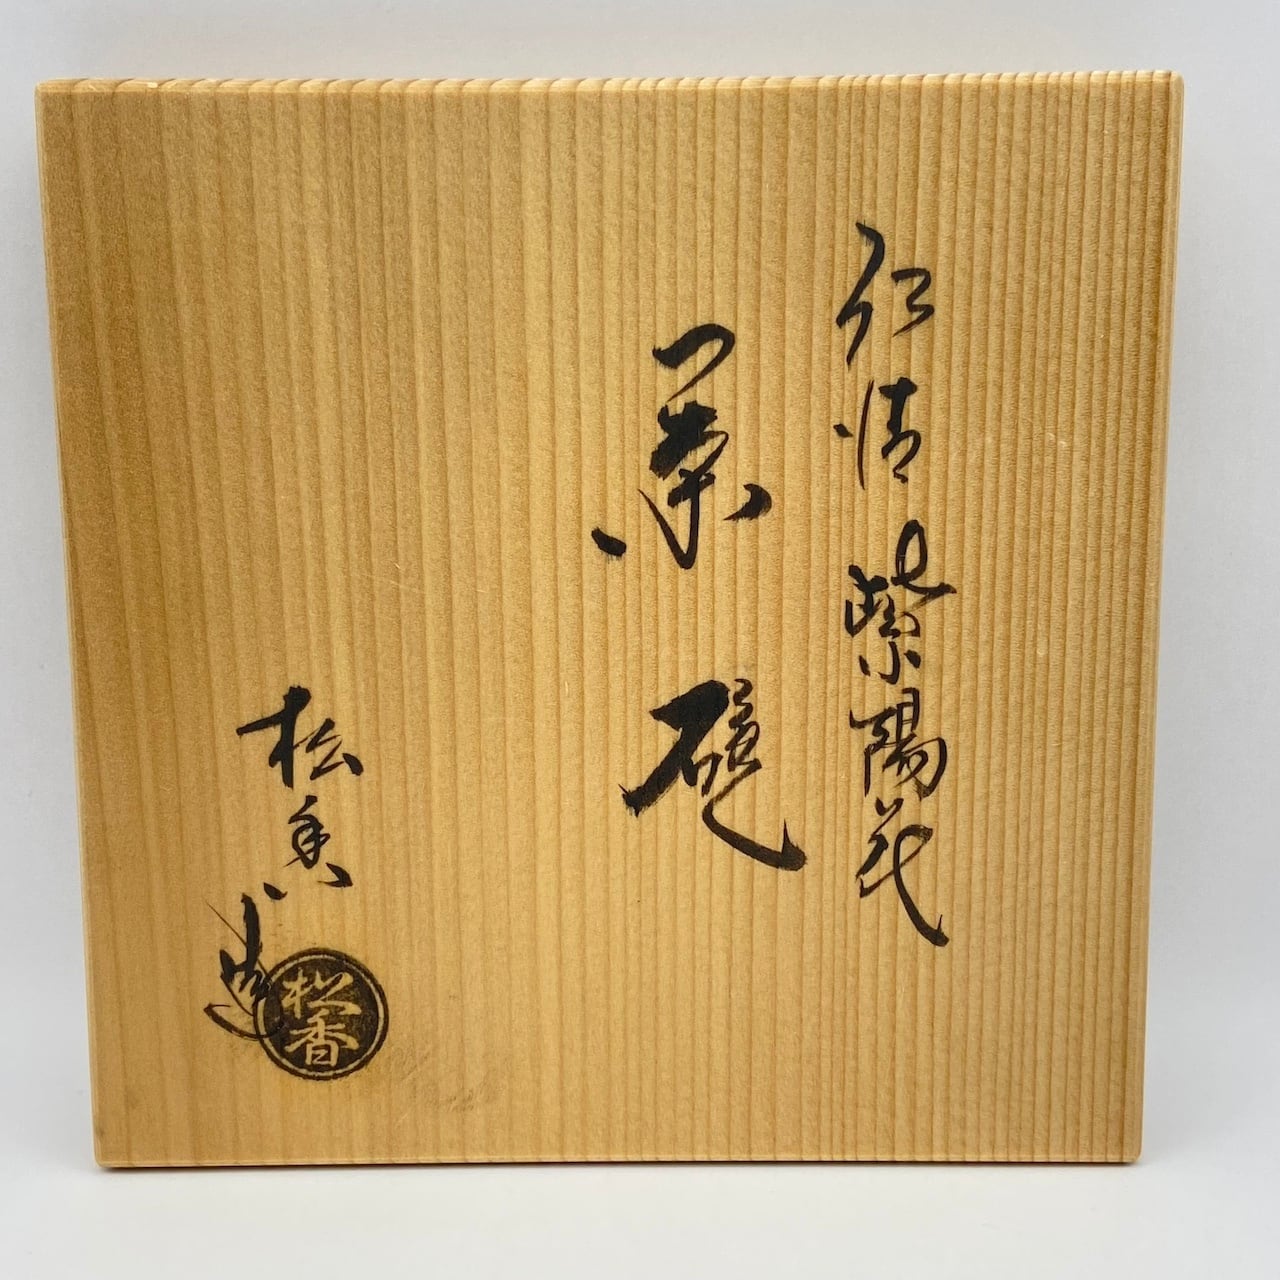 仁清 紫陽花
茶碗
松香造
松香